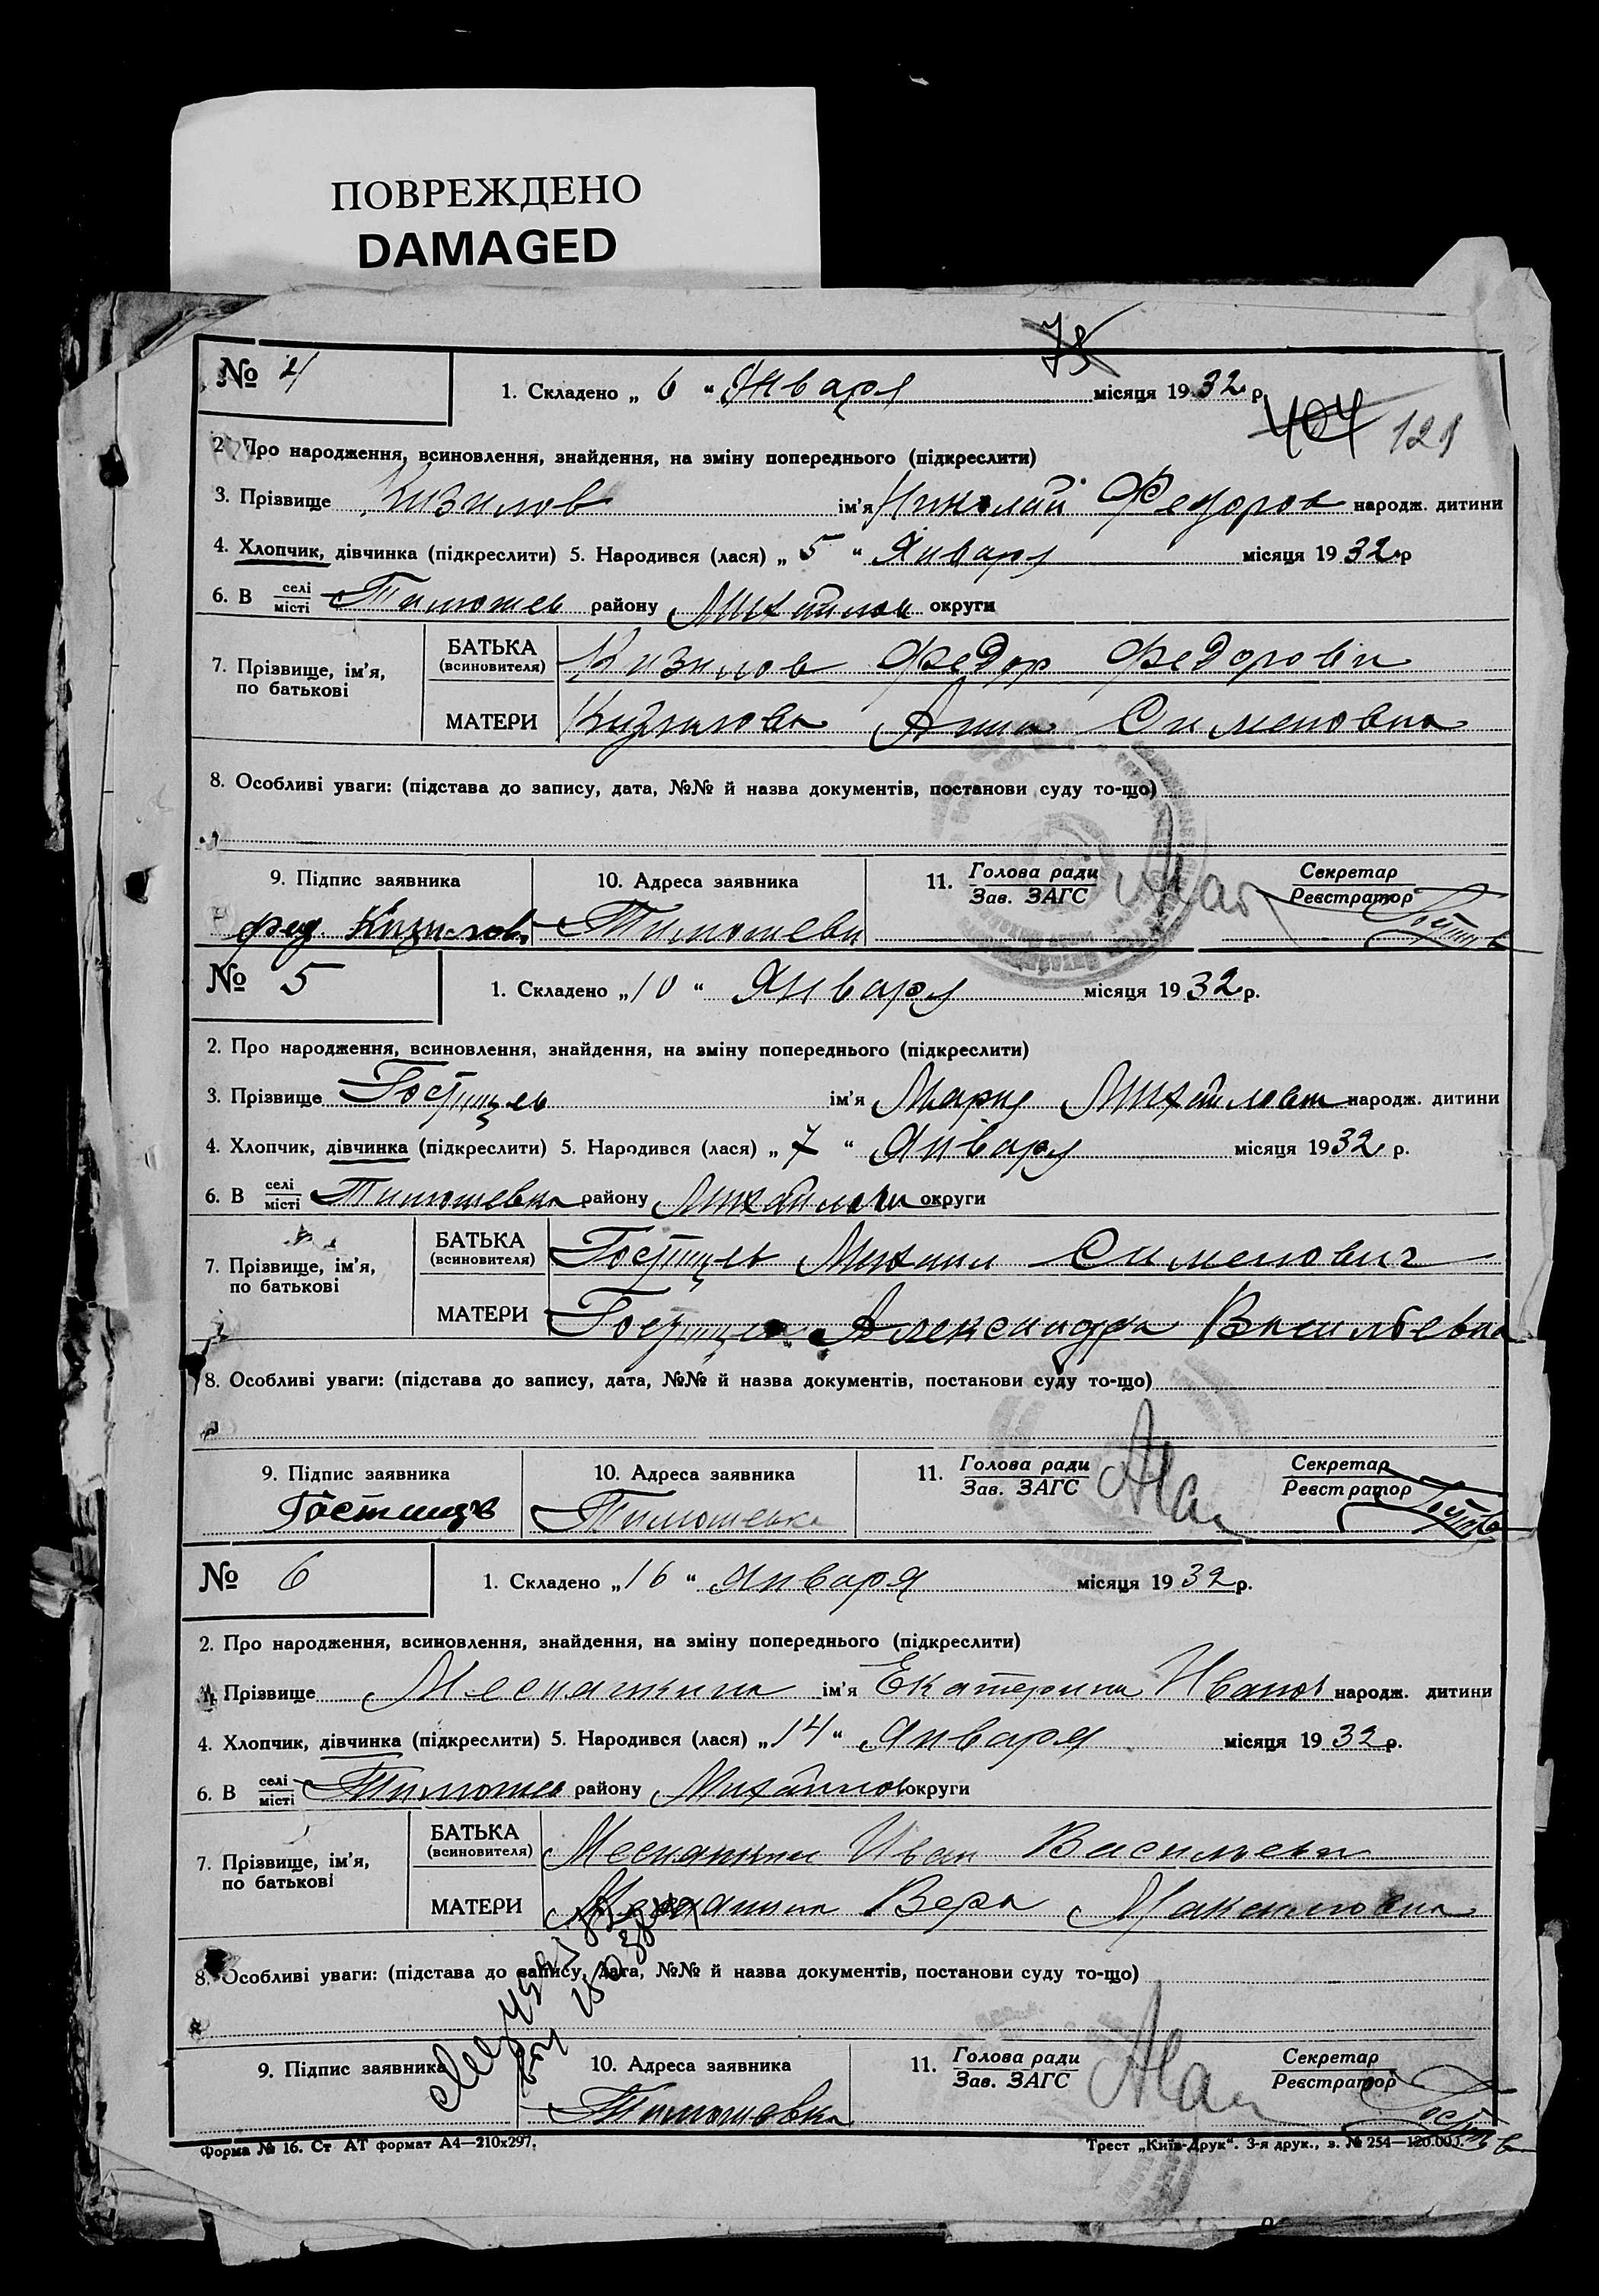 ПОВРЕЖДЕНО
DAMAGED
78
№ 4
1. Складено „ 6 “ Января місяця 1932 р.
404 121
2. Про народження, всиновлення, знайдення, на зміну попереднього (підкреслити)
3. Прізвище Кизилов ім’я Николай Федоров народж. дитини
4. Хлопчик, дівчинка (підкреслити) 5. Народився (лася) „ 5 “ Января місяця 1932 р
6. В селі місті Тимошев району Михайлов округи
7. Прізвище, ім’я, по батькові
БАТЬКА (всиновителя) Кизилов Федор Федорови
МАТЕРИ Кизилова Анна Сименовна
8. Особливі уваги: (підстава до запису, дата, №№ й назва документів, постанови суду то-що)
9. Підпис заявника 10. Адреса заявника 11. Голова ради Зав. ЗАГС Секретар Реєстратор
Фед. Кизилов Тимошевк
№ 5
1. Складено „ 10 “ Января місяця 1932 р.
2. Про народження, всиновлення, знайдення, на зміну попереднього (підкреслити)
3. Прізвище Гостищев ім’я Мария Михайловн народж. дитини
4. Хлопчик, дівчинка (підкреслити) 5. Народився (лася) „ 7 “ Января місяця 1932 р.
6. В селі місті Тимошевка району Михайловк округи
7. Прізвище, ім’я, по батькові
БАТЬКА (всиновителя) Гостищев Михаил Сименович
МАТЕРИ Александра Васильевна
8. Особливі уваги: (підстава до запису, дата, №№ й назва документів, постанови суду то-що)
9. Підпис заявника 10. Адреса заявника 11. Голова ради Зав. ЗАГС Секретар Реєстратор
Гостищев Тимошевка
№ 6
1. Складено „ 16 “ Января місяця 1932 р.
2. Про народження, всиновлення, знайдення, на зміну попереднього (підкреслити)
Прізвище ім’я Екатерина Иванов народж. дитини
4. Хлопчик, дівчинка (підкреслити) 5. Народився (лася) „ 14 “ Января місяця 1932 р.
6. В селі місті Тимошев району Михайлов округи
7. Прізвище, ім’я, по батькові
БАТЬКА (всиновителя) Иван Васильеви
МАТЕРИ Вера Максимовна
8. Особливі уваги: (підстава до запису, дата, №№ й назва документів, постанови суду то-що)
9. Підпис заявника 10. Адреса заявника 11. Голова ради Зав. ЗАГС Секретар Реєстратор
Тимошовка
Форма № 16. Ст АТ формат А4—210х297.
Трест „Київ-Друк“. 3-я друк., з. № 254—120.000.